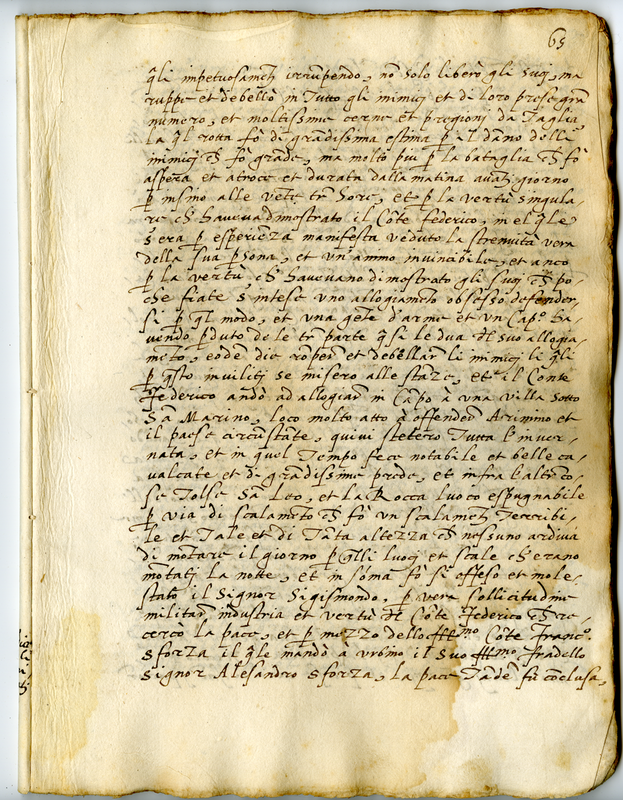 65
q̃li impetuosam̃te irrũpendo, nõ solo liberò gli suoj, ma
ruppe et debellò in Tutto gli inimicj et di loro prese gran
numero, et moltissime cerne et pregionj da Taglia
la q̃l rotta fò di grandissima estima p il danno delli
inimicj ch̃ fò grande, ma molto piu p la bataglia ch̃ fò
aspera et atroce et durata dalla matina auãtj giorno
p insino alle vẽte tre hore, et p la vertù singula,
re ch̃ haueua dimostrato il Cõte federico, in el q̃le
s'era p esperienza manifesta veduto la strenuità vera
della sua psona, et un animo inuincibile, et anco
p la vertù, ch̃ haueuano dimostrato gli suoj ch̃ po,
che fiate s'intese uno allogiamẽto obsesso defender,
si p q̃l modo, et una gẽte d'arme et un Capo ha,
uendo pduto de le tre parte q̃si le dua del suo allogia,
mẽto, eodẽ die roper et debellar li inimicj li q̃li
p q̃sto inuilitj se misero alle stãze, et il Conte
Federico andò ad allogiar in Cãpo a una villa sotto
Sã Marino, loco molto atto à offender Arimino et
il paese circũstãte, quiui stetero Tutta l'inuer,
nata, et in quel Tempo fece notabile et belle ca,
ualcate et di grandissime prede, et infra l'altre co,
se Tolse Sã Leo, et la Rocca luoco espugnabile
p via di scalamẽto ch̃ fò un scalamẽte Terribi,
le et Tale et di Tãta altezza ch̃ nessuno ardiua
di mõtare il giorno p q̃lli luocj et scale ch̃ erano
mõtatj la notte, et in sõma fò sì offeso et mole,
stato il Signor Sigismondo, p vera sollicitudine
militar industria et vertù del Cõte Federico ch̃ re,
cercò la pace, et p mezzo dello Illmo Cõte Franc.o
Sforza il q̃le mandò à vrbino il suo Illmo fradello
Signor Alesandro sforza, la pace Tãdẽ fù cõclusa,